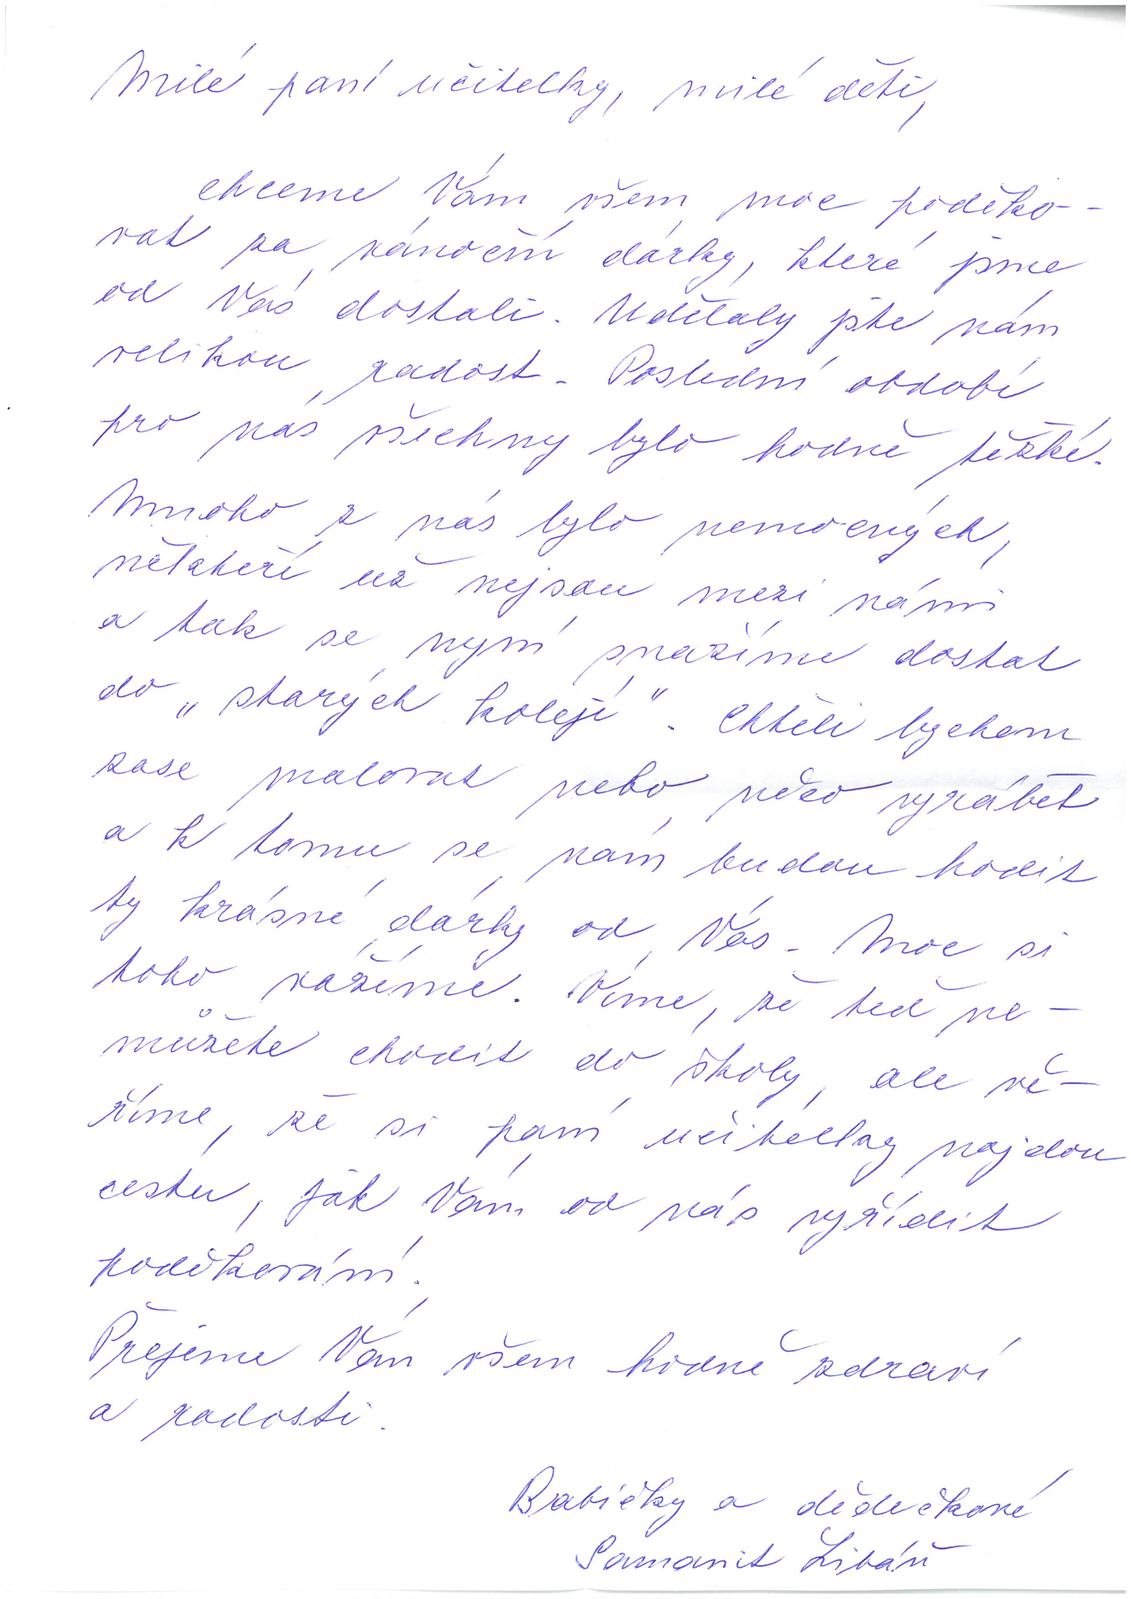 Milé paní učitelky, milé děti,
chceme Vám všem moc poděko-
vat za vánoční dárky, které jsme
od Vás dostali. Udělaly jste nám
velikou radost. Poslední období
pro nás všechny bylo hodně těžké.
Mnoho z nás bylo nemocných,
někteří už nejsou mezi námi
a tak se nyní snažíme dostat
do „starých kolejí". Chtěli bychom
zase malovat nebo něco vyrábět
a k tomu se nám budou hodit
ty krásné dárky od Vás. Moc si
toho vážíme. Víme, že teď ne-
můžete chodit do školy, ale vě-
říme, že si paní učitelky najdou
cestu, jak Vám od nás vyřídit
poděkování.
Přejeme Vám všem hodně zdraví
a radosti.
Babičky a dědečkové
Samanit Libáň